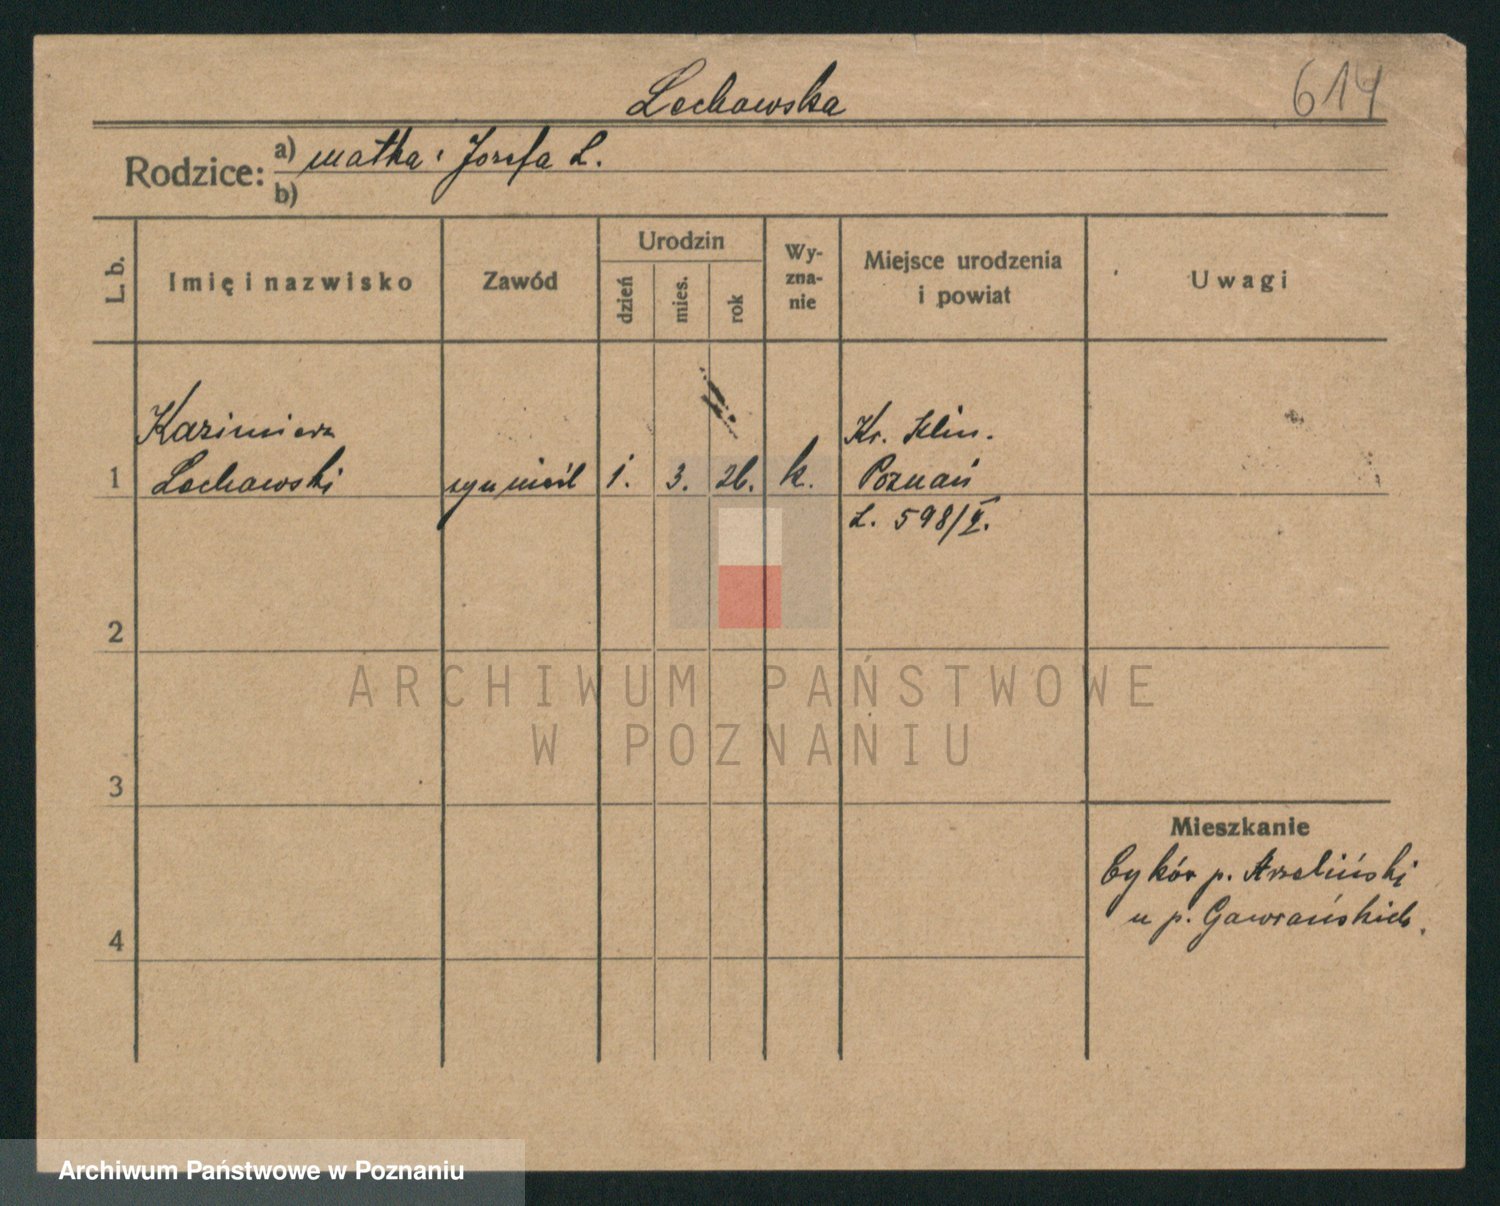 Lechowska
614
Rodzice: a) matka: Józefa L.
b)
L. b.
Imię i nazwisko
Zawód
Urodzin
dzień
mies.
rok
Wy-
zna-
nie
Miejsce urodzenia
i powiat
Uwagi
Kazimierz
Lechowski
1
syn nieśl
1.
3.
26.
k.
Kr. Klin.
Poznań
L. 598/V.
2
3
4
Mieszkanie
Cykór p.
u p. Gawrańskich.
ARCHIWUM PAŃSTWOWE
W POZNANIU
Archiwum Państwowe w Poznaniu